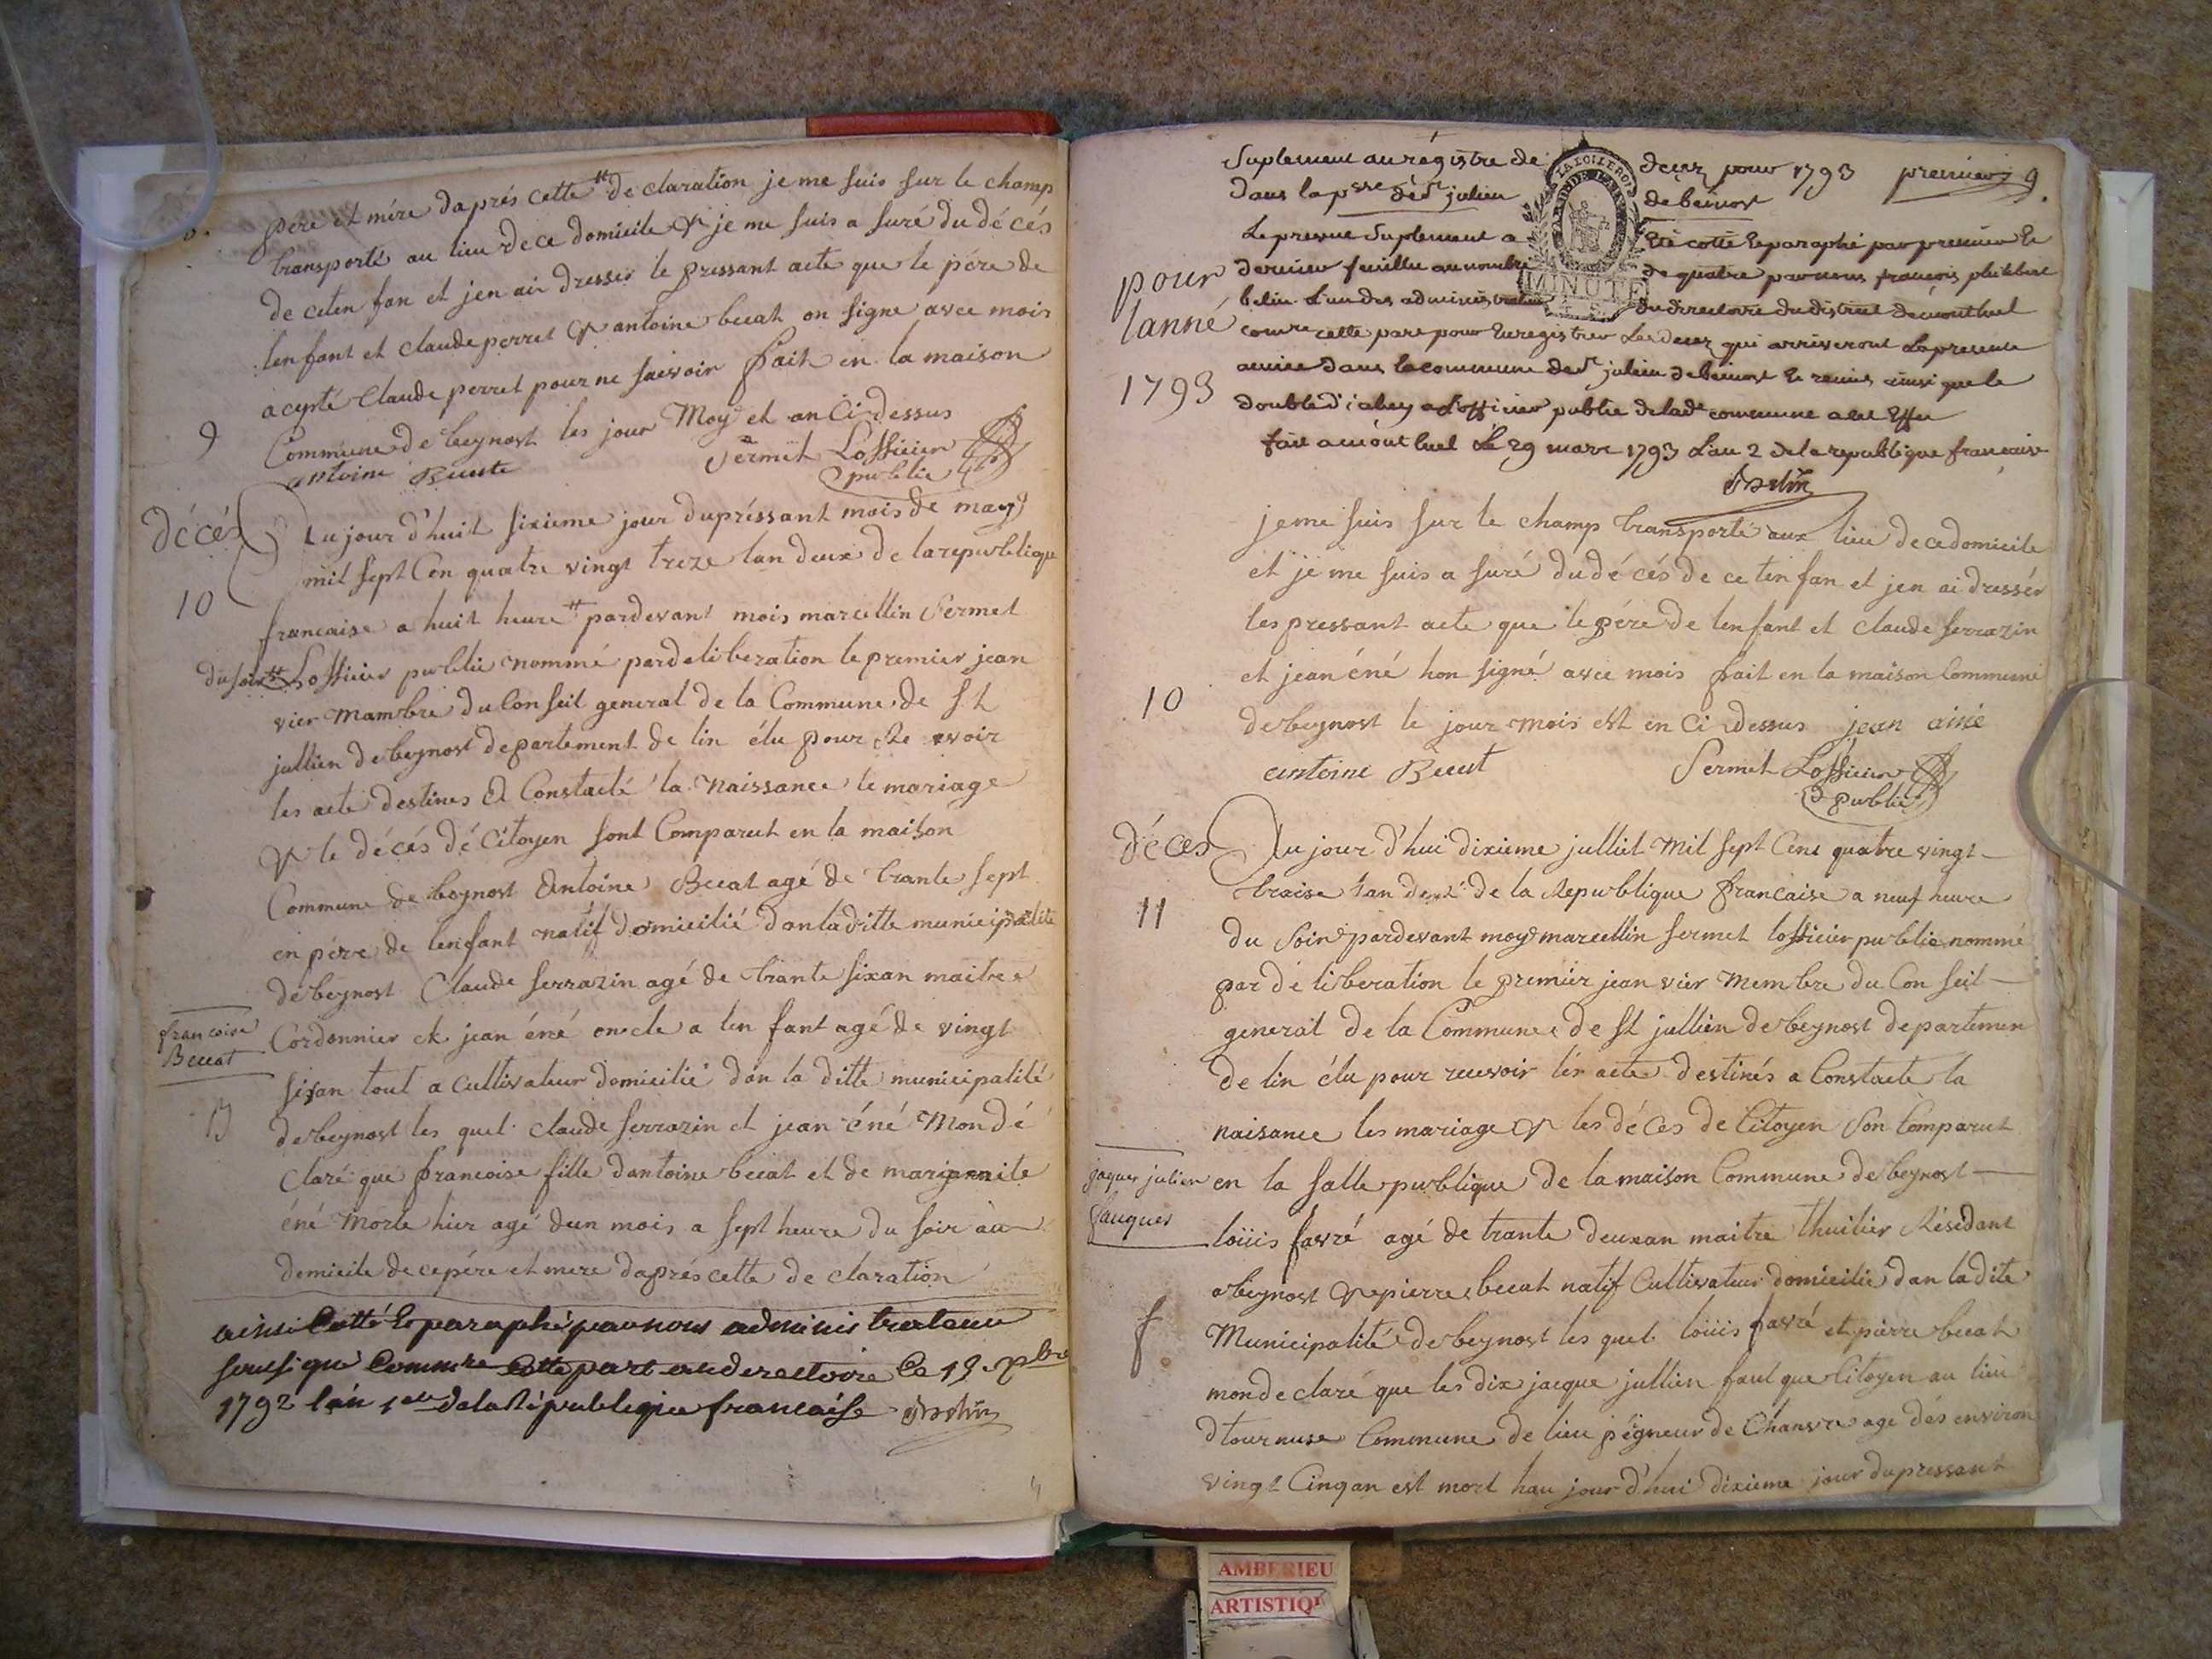 père et mère daprés cette declaration je me suis sur le champ
transporté au lieu de ce domicile & je me suis a suré du décés
de cetenfan et jen air dresser le pressant acte que le père de
lenfant et claude perret & antoine becat on signe avec mois
acepté Claude perret pour ne saivoir fait en la maison
9
Commune de beynost les jour Moy et an Ci dessus
antoine Becat
Sermet Lofficier
public
décés
Aujourd'huit sixieme jour du préssant mois de may
mil sept Cen quatre vingt treze lan deux de la republique
10
francaise a huit heure pardevant mois marcellin Sermet
du soir Lofficier publie nommé pardeliberation le premier jean
vier Mambre du Conseil general de la Commune de St
jullien de beynost departement de lin élu pour Re evoir
les acte destines a Constacté la Naissance le mariage
& le décés dé Citoyen sont Comparut en la maison
Commune de beynost Antoine Becat agé de trante sept
en père de lenfant natif domicilié dan laditte municipalité
de beynost Claude Serrazin agé de trante sixan maitre
francoise
Beccat
Cordonnier et jean éné oncle a lenfant agé de vingt
sixan tout a Cultivateur domicilié dan la ditte municipalité
de beynost les quel claude Serrazin et jean éné Mon dé
Claré que francoise fille dantoine becat et de mariannite
éné Morte hier agé dun mois a sept heure du soir au
domicile de ce père et mere daprés cette declaration
ainsi Cotté & paraphé par nous administrateur
soussigné Commre cette part au directoire Ce 19
1792 lan 1er de la République francaise
Suplement au régistre de decez pour 1793 premier 9.
dans la psse de st julien de beinost
LA LOI LE ROI
MINUTE
pour
lanné
1793
Le present Suplement a été cotté & paraphé par premier &
dernier feuillet au nombre de quatre par nous françois philibert
belin L'un des administrateur du directoire du district de montluel
comre cette part pour Enregistrer Les decez qui arriveront La presente
année dans la commune de st julien de beinost & remis ainsi que le
double d'icelui a L'officier public de lade commune a cet Effet
fait a montluel Le 29 mars 1793 L'an 2 de la republique francaise
Belin
je me suis sur le champ transporté aux lieu de ce domicile
et je me suis a suré du décés de ce tenfan et jen ai dressér
les pressant acte que le pére de lenfant et claude Serrazin
et jean éné hon signé avec mois fait en la maison Commune
10
de beynost le jour mois est en Ci dessus jean ainé
antoine Becat
Sermet Lofficier
public
déces
Aujourd'hui dixieme julliet Mil sept Cent quatre vingt
traise lan deux de la Republique francaise a neuf heure
11
du Soir pardevant moy marcellin Sermet lofficier publie nommé
par dé liberation le premier jean vier Membre du Conseil
general de la Commune de St jullien de beynost departemen
de lin élu pour recevoir lés acte destinés a Constacte la
naisance les mariage & les déces de Citoyen Son Comparut
jaques julien
fauques
en la Salle publique de la maison Commune de beynost
loüis favré agé de trante deuxan maitre thuilier Résidant
a beynost & pierre becat natif Cultivateur domicilié dan la dite
f
Municipalité de beynost les quel loüis favré et pierre becat
mon de claré que les dix jacque jullien faut que Citoyen au lieu
dtournuse Commune de lieu pégneur de Chanvre agé dés environ
vingt Cinqan est mort hau jour d'hui dixieme jour du pressant
AMBERIEU